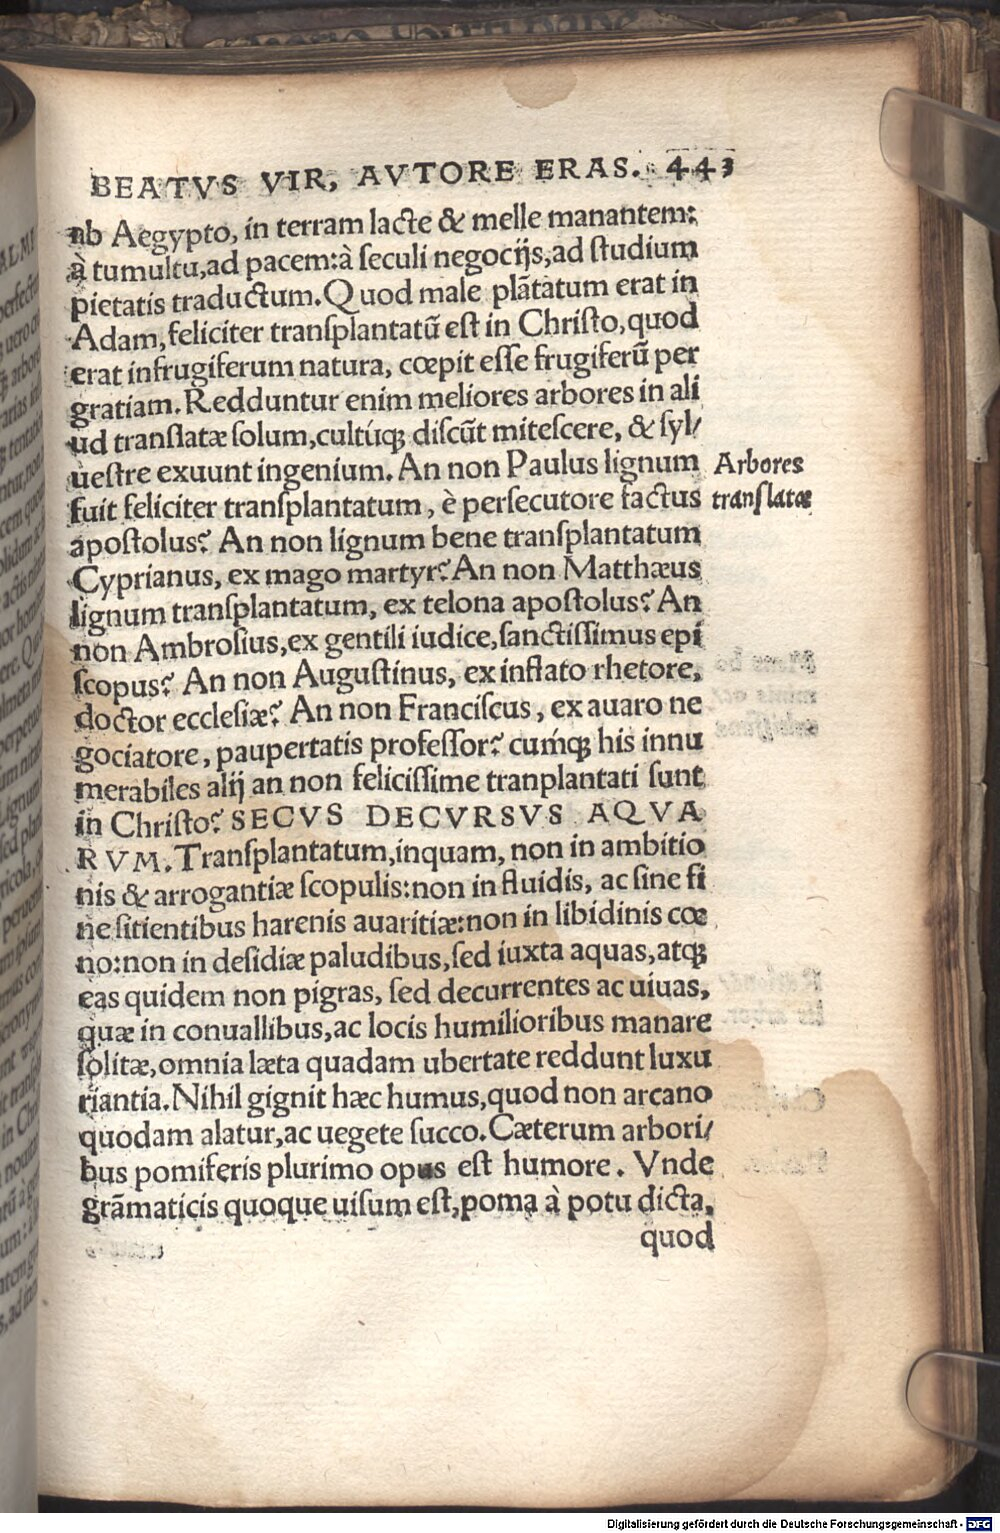 BEATVS VIR, AVTORE ERAS. 443
ab Aegypto, in terram lacte & melle manantem:
à tumultu,ad pacem:à ſeculi negocijs,ad ſtudium
pietatis traductum.Quod male plātatum erat in
Adam,feliciter tranſplantatū eſt in Chriſto,quod
erat infrugiferum natura, cœpit eſſe frugiferū per
gratiam.Redduntur enim meliores arbores in ali
ud tranſlatæ ſolum,cultúꝗ diſcūt miteſcere, & ſyl/
ueſtre exuunt ingenium.An non Paulus lignum
Arbores
fuit feliciter tranſplantatum, è perſecutore factus
tranſlatæ
apoſtolus? An non lignum bene tranſplantatum
Cyprianus, ex mago martyr? An non Matthæus
lignum tranſplantatum, ex telona apoſtolus? An
non Ambroſius,ex gentili iudice,ſanctiſſimus epi
ſcopus? An non Auguſtinus, ex inflato rhetore,
doctor eccleſiæ? An non Franciſcus, ex auaro ne
gociatore, paupertatis profeſſor? cumꝗ; his innu
merabiles alij an non feliciſſime tranplantati ſunt
in Chriſto? SECVS DECVRSVS AQVA
RVM. Tranſplantatum,inquam, non in ambitio
nis & arrogantiæ ſcopulis:non in fluidis, ac ſine fi
ne ſitientibus harenis auaritiæ:non in libidinis cœ
no:non in deſidiæ paludibus,ſed iuxta aquas,atꝗ;
eas quidem non pigras, ſed decurrentes ac uiuas,
quæ in conuallibus,ac locis humilioribus manare
ſolitæ,omnia læta quadam ubertate reddunt luxu
riantia.Nihil gignit hæc humus,quod non arcano
quodam alatur,ac uegete ſucco.Cæterum arbori/
bus pomiferis plurimo opus eſt humore. Vnde
grāmaticis quoque uiſum eſt,poma à potu dicta,
quod
Digitalisierung gefördert durch die Deutsche Forschungsgemeinschaft - DFG